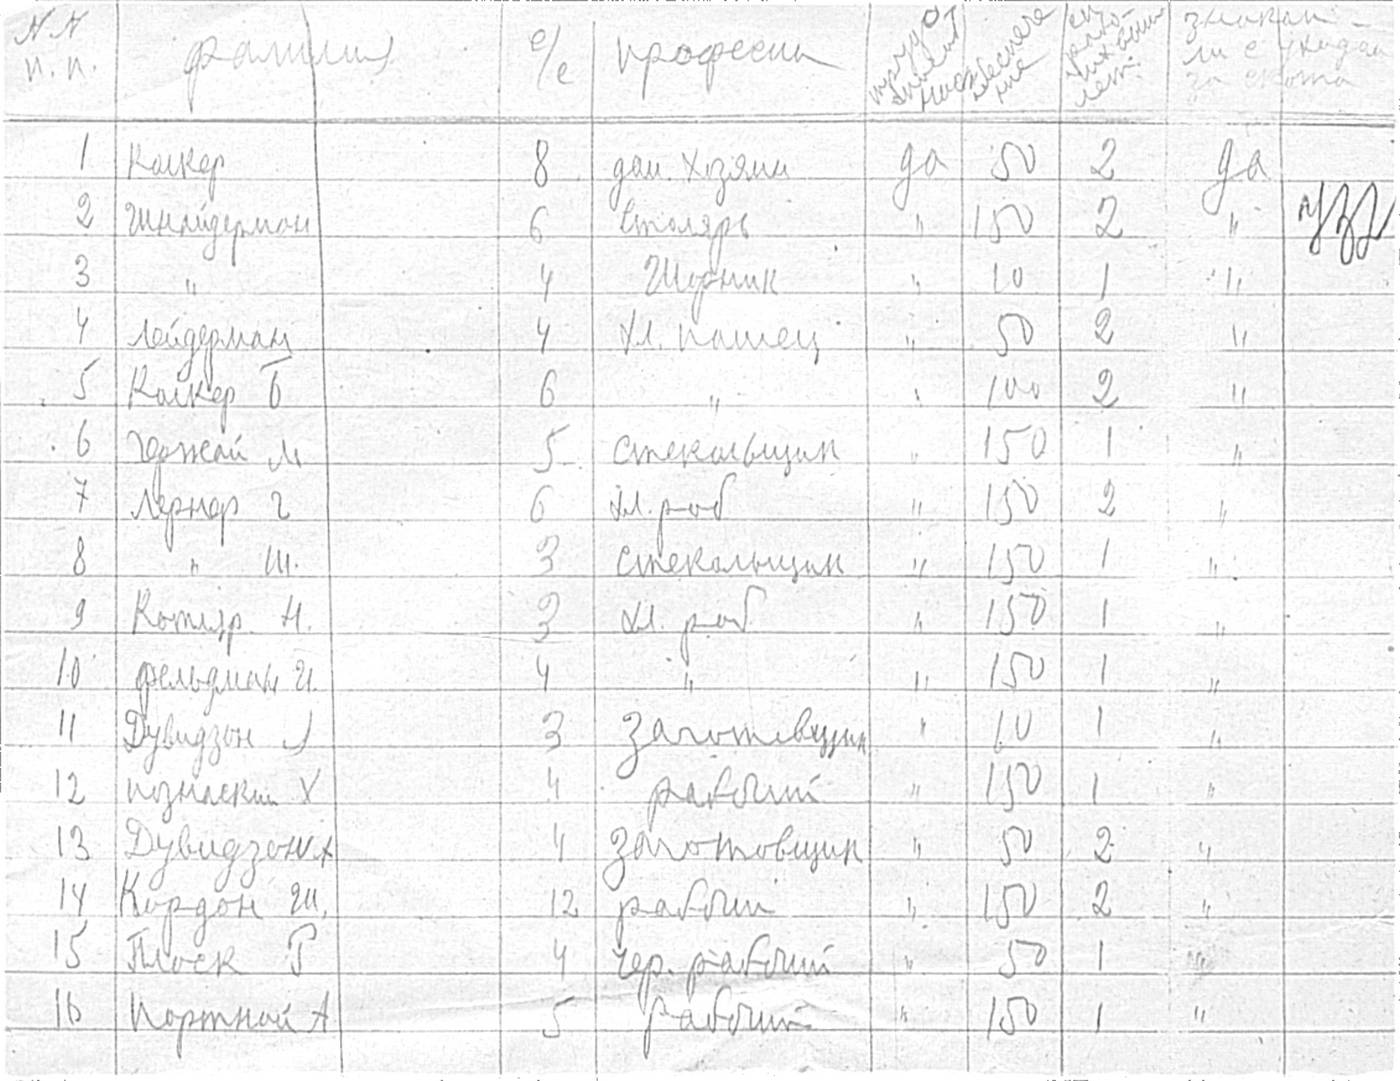 NN п.п. фамилия с/с професии труд от
1 Колкер 8 дом. хозяин да 50 2 да
2 Шнайдерман 6 Столярь " 150 2 "
3 " 4 Шорник " 10 1 "
4 Лейдерман 4 хл. пашец " 50 2 "
5 Колкер Б 6 " " 100 2 "
6 М 5 стекольщик " 150 1 "
7 Лернер Г 6 хл. роб " 150 2 "
8 " Ш. 3 стекольщик " 150 1 "
9 Котляр. Н. 3 хл. роб " 150 1 "
10 Фельдман И. 4 " " 150 1 "
11 Дувидзон Л 3 Заготовщик " 10 1 "
12 Х 4 рабочий " 150 1 "
13 Дувидзон Х 4 заготовщик " 50 2 "
14 Кордон Ш. 12 рабочий " 150 2 "
15 Плоск Г 4 чер. рабочий " 50 1 "
16 Портной А 5 рабочий " 150 1 "